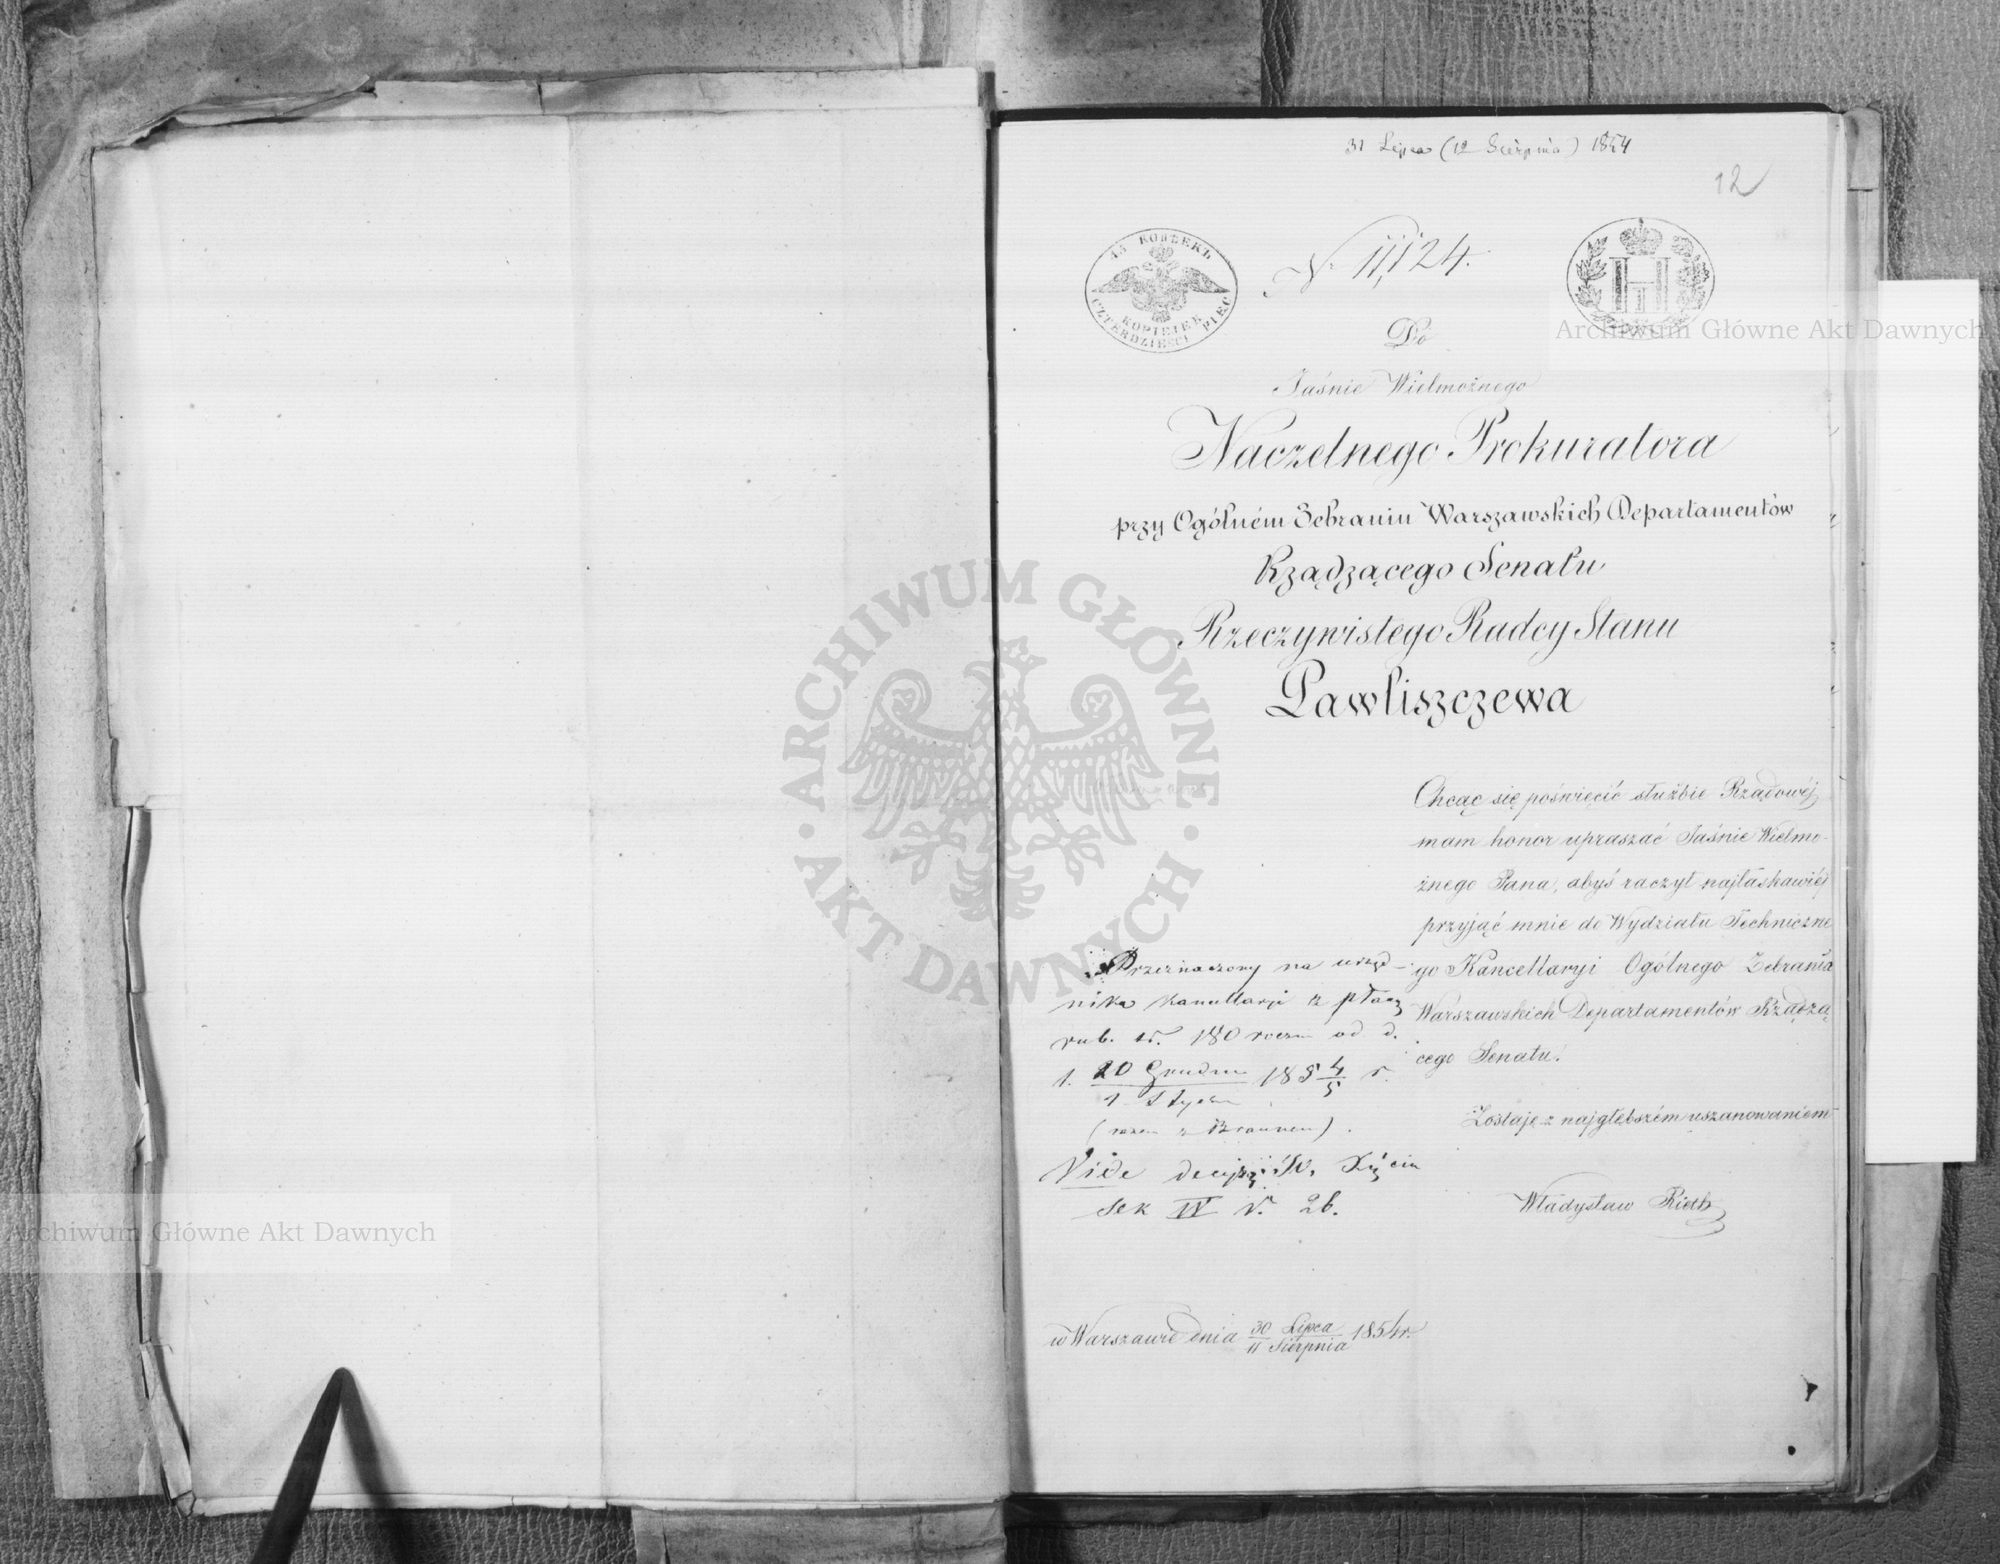 31 Lipca (12 Sierpnia) 1854
12
45 КОПѢЕКЪ
KOPIEJEK
CZTERDZIEŚCI PIĘĆ
N. 11,124.
Do
Jaśnie Wielmożnego
Naczelnego Prokuratora
przy Ogólném Zebraniu Warszawskich Departamentów
Rządzącego Senatu
Rzeczywistego Radcy Stanu
Pawliszczewa
Chcąc się poświęcić służbie Rządowéj
mam honor upraszać Jaśnie Wielmo-
żnego Pana, abyś raczył najłaskawiéj
przyjąć mnie do Wydziału Techniczne
go Kancellaryi Ogólnego Zebrania
Warszawskich Departamentów Rządzą
cego Senatu.
Zostaję z najgłębszém uszanowaniem
Władysław Rieth
Przeznaczony na urzęd-
nika kancellaryi z płacą
rub. sr. 180 od d.
20 Grudnia 185 4/5 r.
1 Stycznia
(razem z Braunem).
Vide
Sek IV N. 26.
w Warszawie dnia 30 Lipca / 11 Sierpnia 1854 r.
Archiwum Główne Akt Dawnych
ARCHIWUM GŁÓWNE · AKT DAWNYCH ·
Archiwum Główne Akt Dawnych